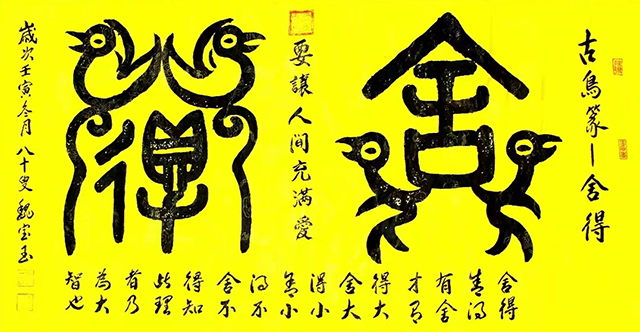 古鳥篆一舍得
舍
要讓人间充滿愛
得
歲次壬寅冬月 八十叟 魏宝玉
舍得
舍得
有舍
才有
得大
舍大
得小
舍小
得不
舍不
得知
此理
者乃
為大
智也